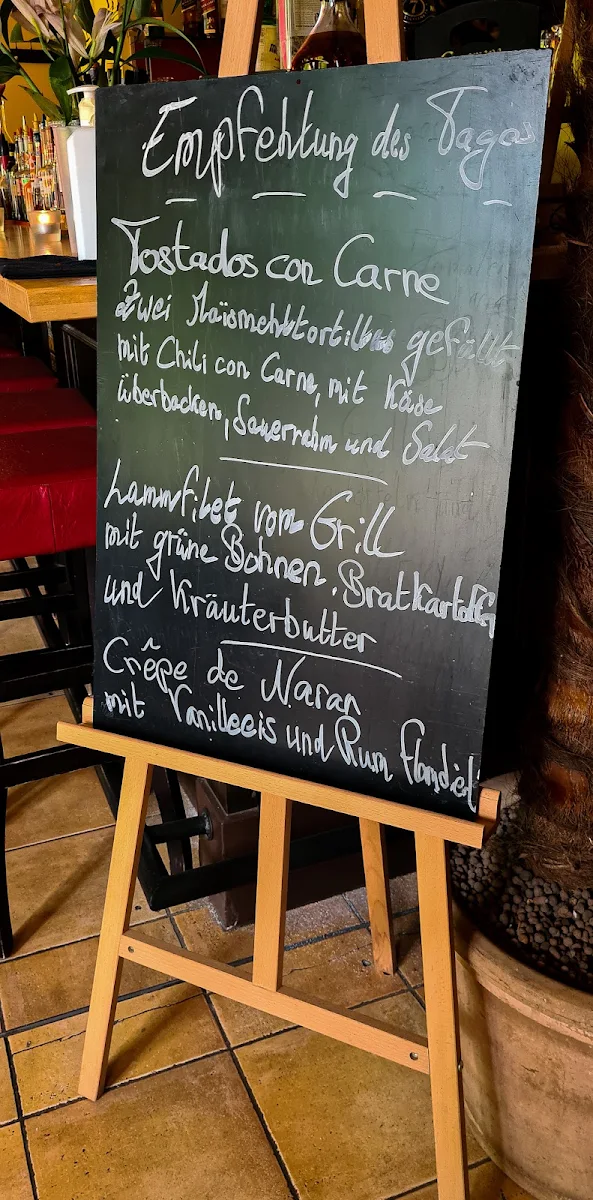 Empfehlung des Tages
Tostados con Carne
Zwei Maïsmehltortillas gefüllt
mit Chili con Carne, mit Käse
überbacken, Sauerrahm und Salat
Lammfilet vom Grill
mit grüne Bohnen, Bratkartoffeln
und Kräuterbutter
Crêpe de Naran
mit Vanilleeis und Rum flambiert